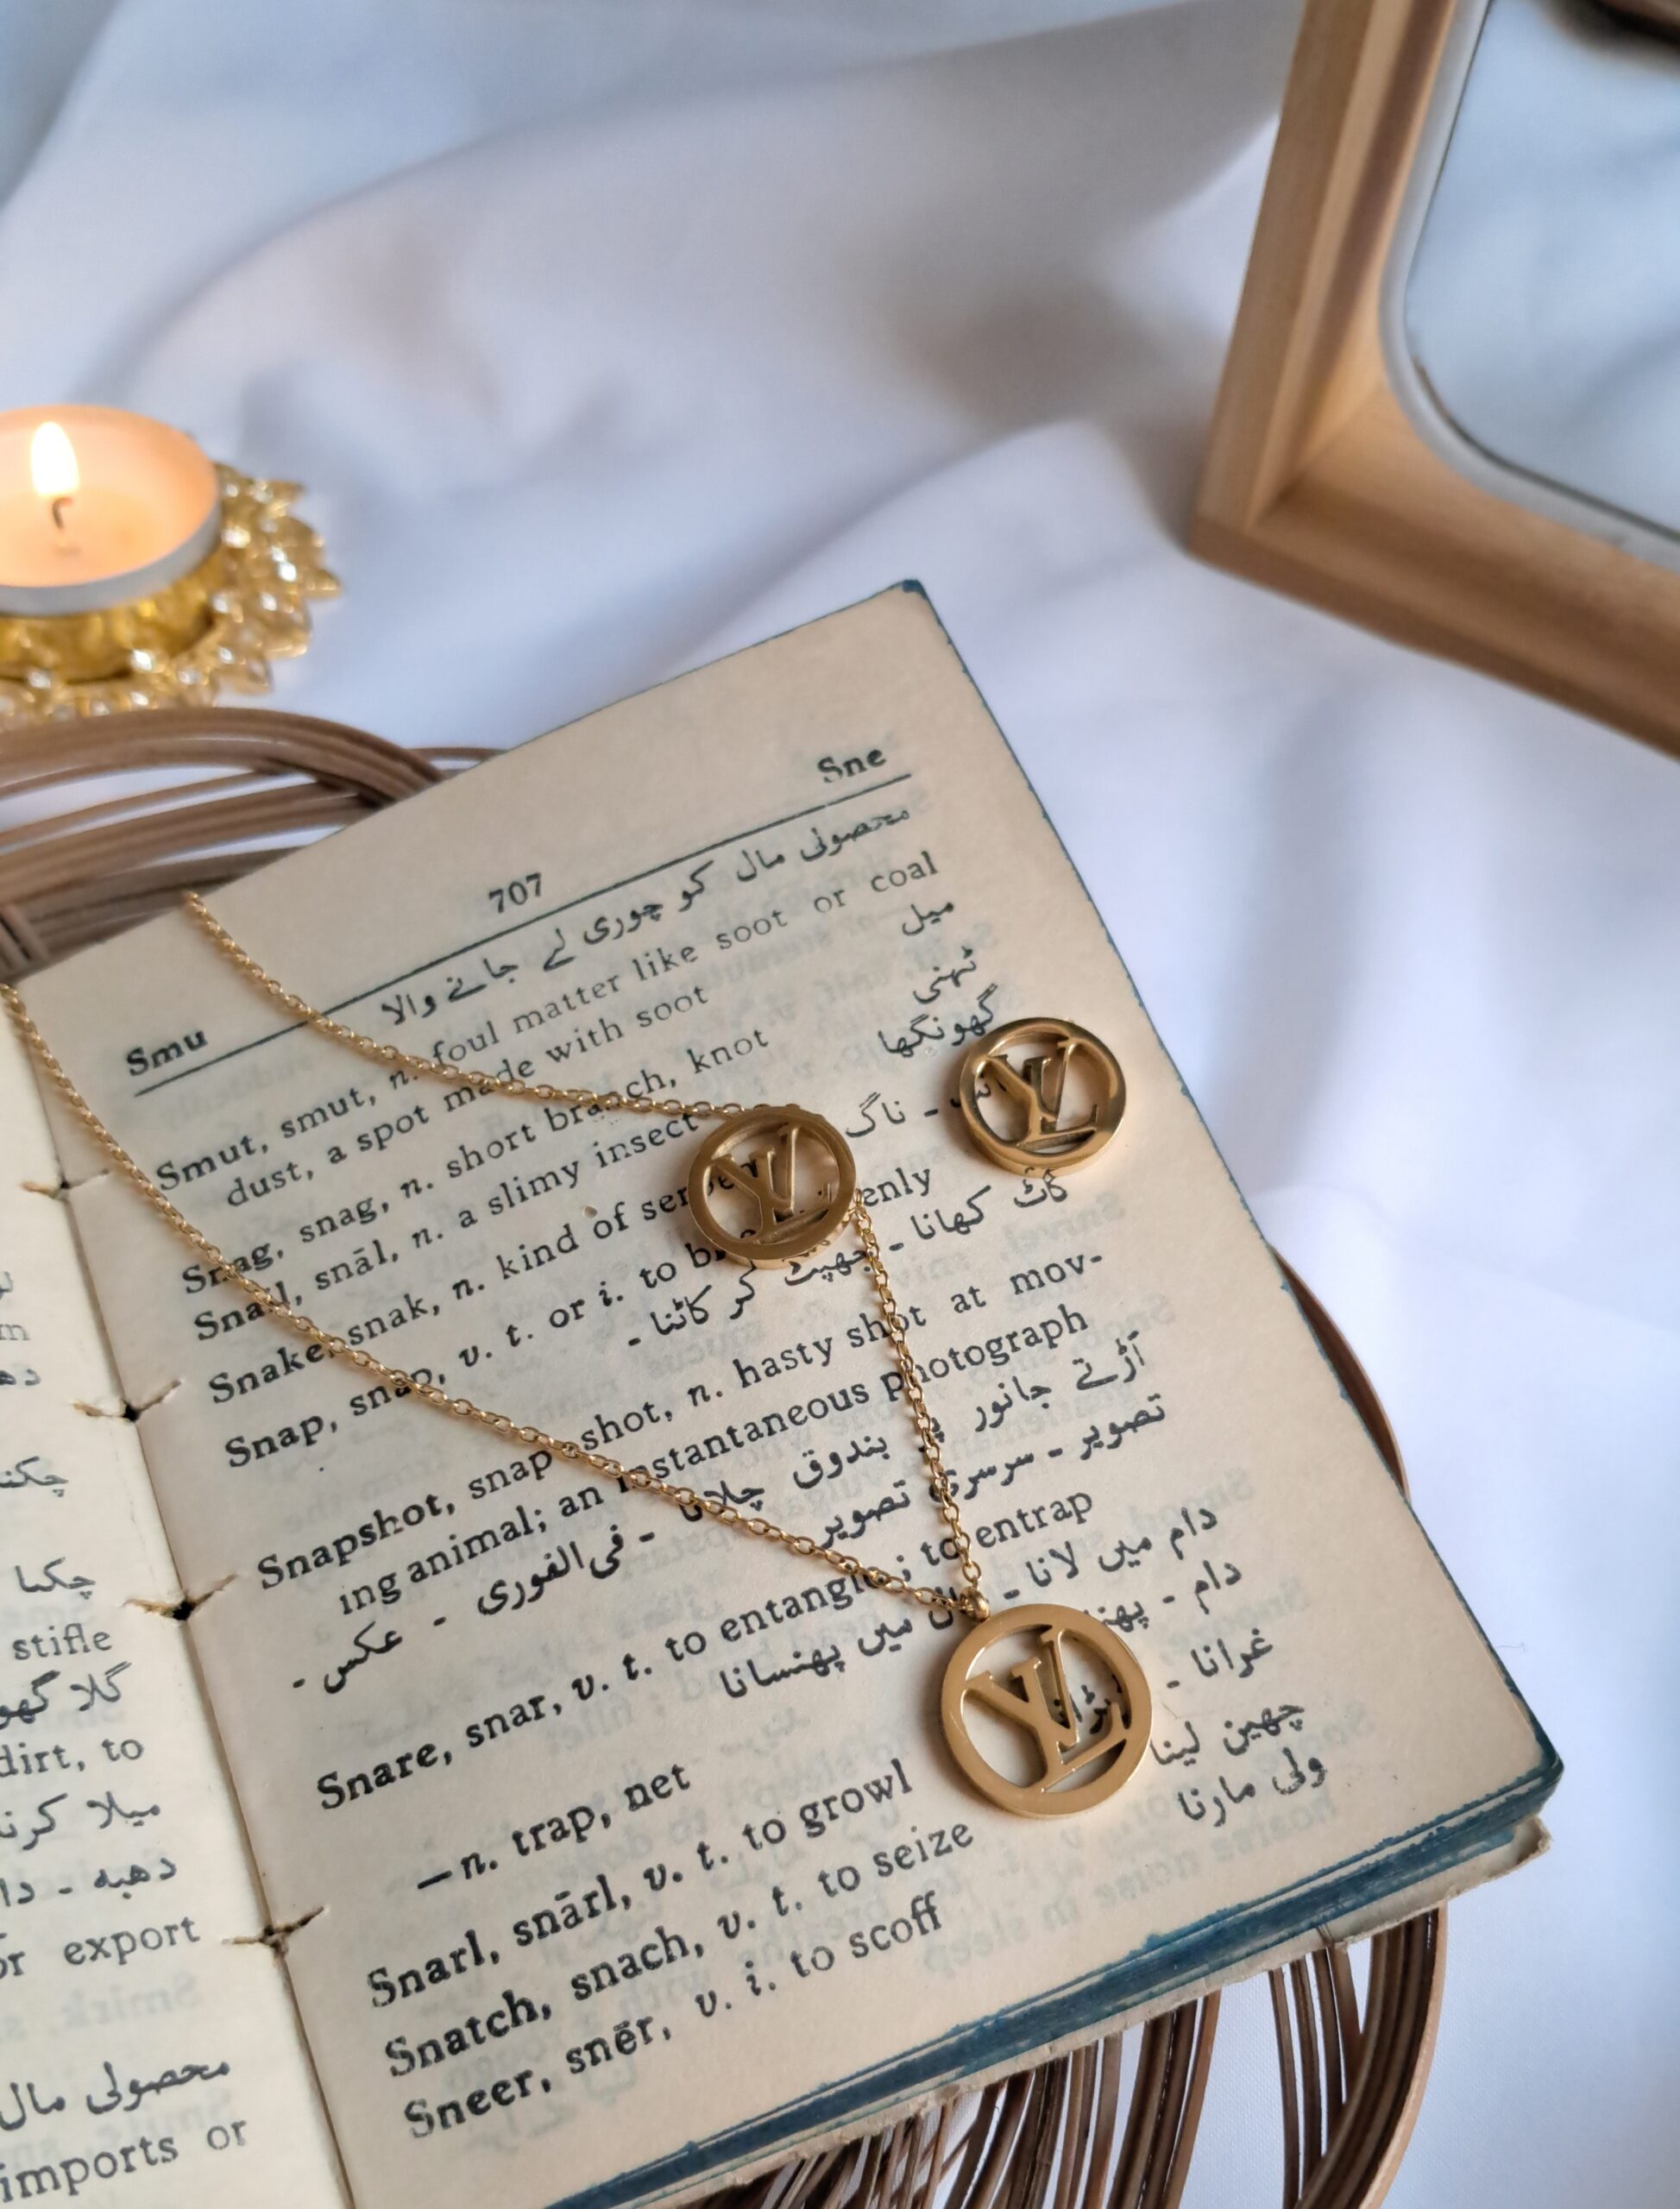 m
چکنا
stifle
گلا گھو
dirt, to
میلا کرنا
دھبہ - دا
or export
محصولی مال
imports or
Smu 707 Sne
محصولی مال کو چوری لے جانے والا
Smut, smut, n. foul matter like soot or coal
dust, a spot made with soot میل
Snag, snag, n. short branch, knot ٹہنی
Snail, snāl, n. a slimy insect گھونگھا
Snake, snak, n. kind of ناگ -
Snap, snap, v. t. or i. to enly
کاٹ کھانا - جھپٹ کر کاٹنا -
Snapshot, snap shot, n. hasty shot at mov-
ing animal; an instantaneous photograph
اڑتے جانور پر بندوق چلانا - فی الفوری - عکس -
تصویر - سرسری تصویر
Snare, snar, v. t. to entangle; to entrap
دام میں لانا - میں پھنسانا
—n. trap, net دام -
Snarl, snārl, v. t. to growl غرانا -
Snatch, snach, v. t. to seize چھین لینا
Sneer, snēr, v. i. to scoff مارنا
LV
LV
LV